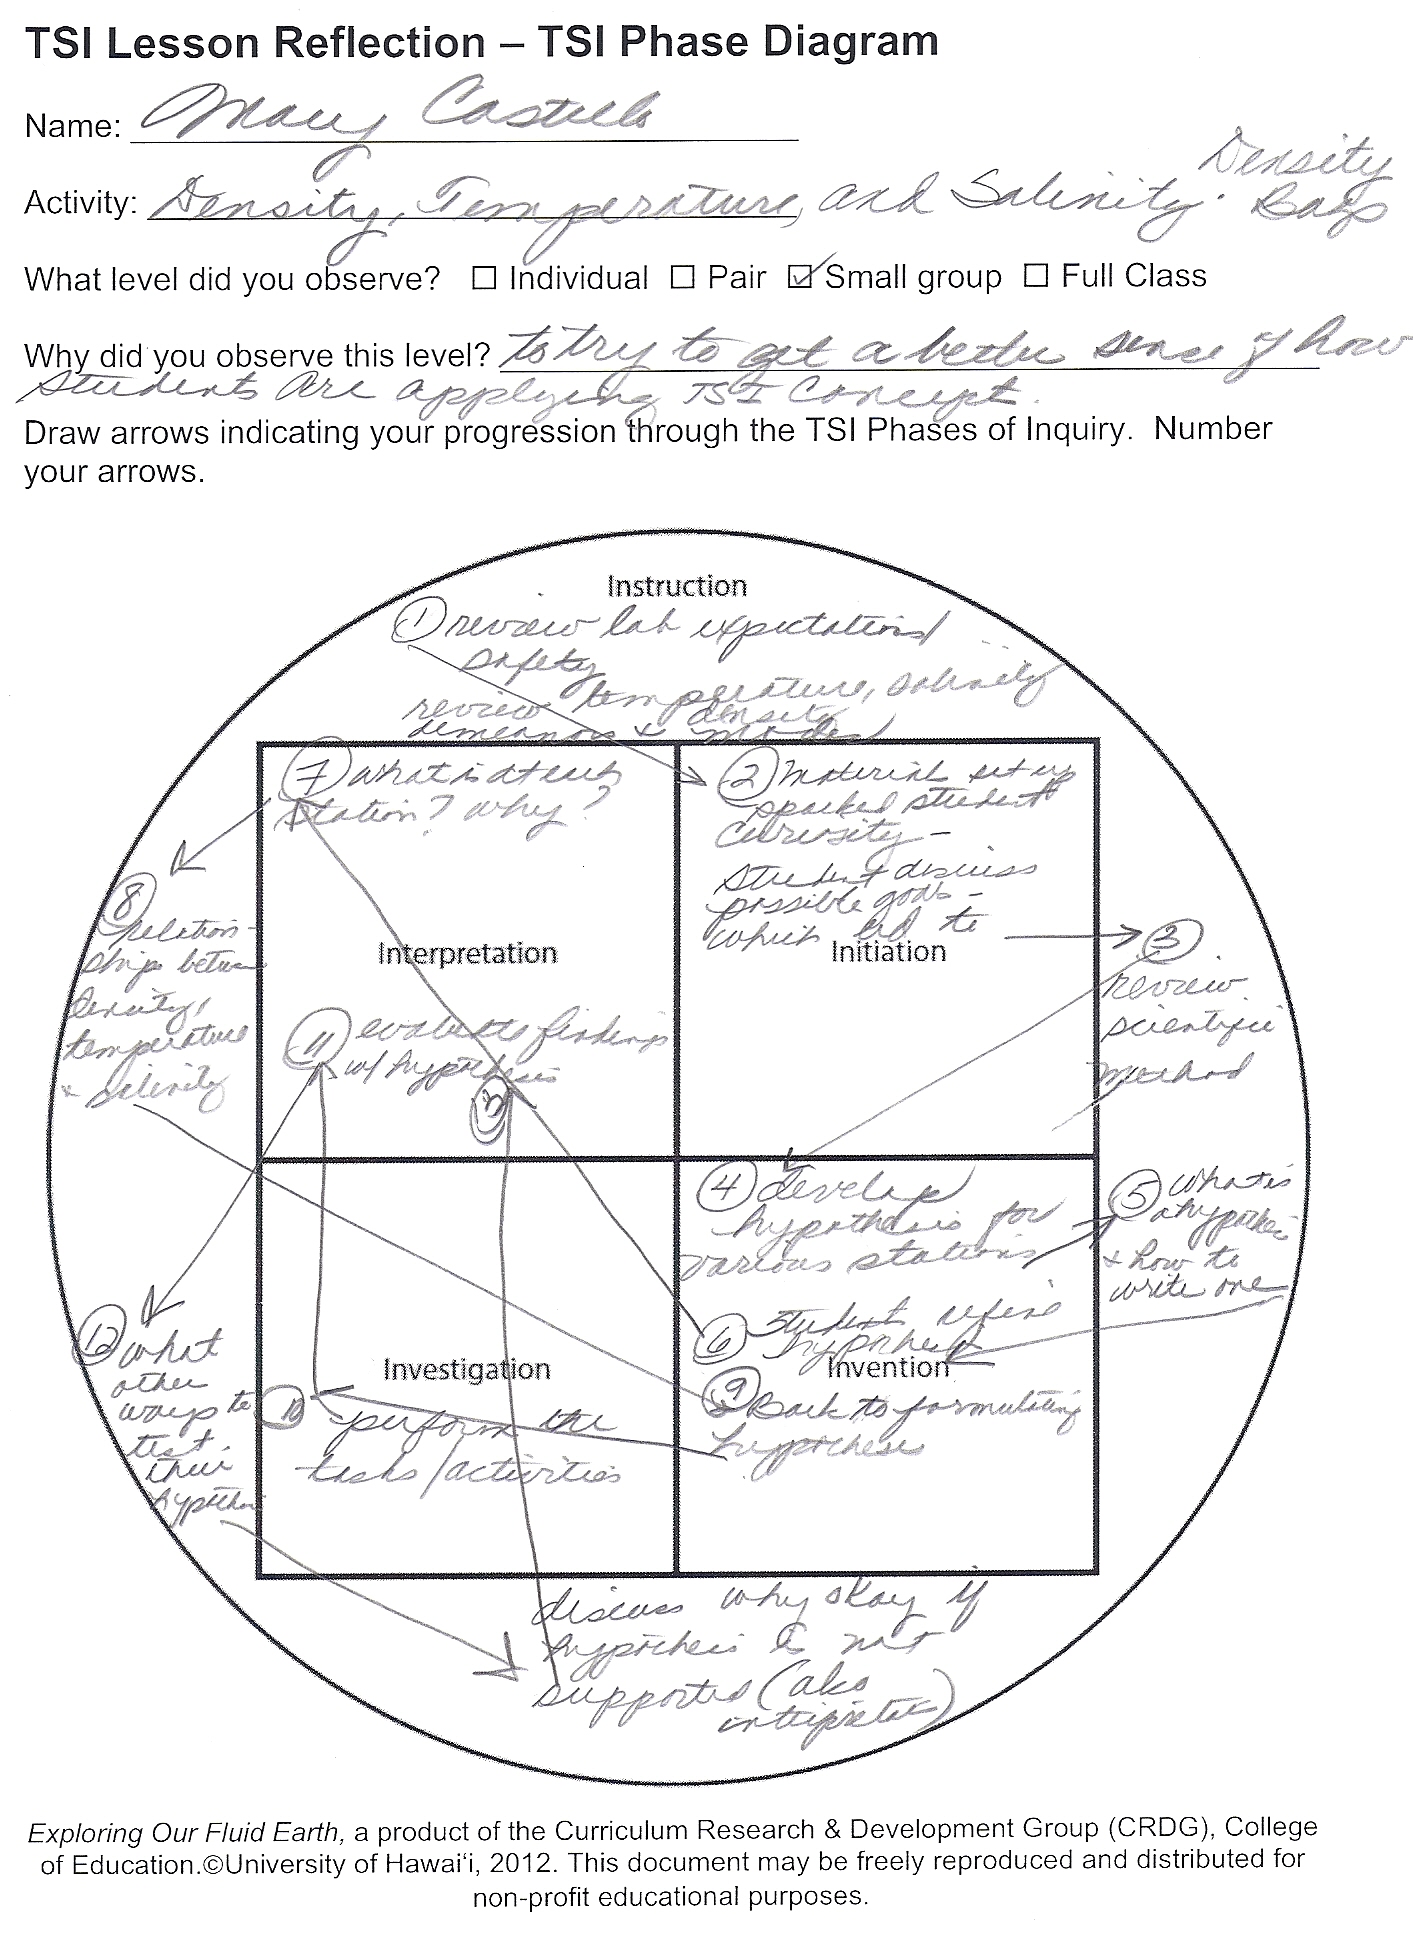 TSI Lesson Reflection – TSI Phase Diagram
Name: Mary Castillo
Density
Activity: Density, Temperature, and Salinity. Bags
What level did you observe? ☐ Individual ☐ Pair ☑ Small group ☐ Full Class
Why did you observe this level? to try to get a better sense of how
students are applying TSI Concept.
Draw arrows indicating your progression through the TSI Phases of Inquiry. Number
your arrows.
Instruction
1 review lab expectations/
safety
review temperature, salinity
density
demeanors & modes
7 what is at each
station? why?
2 Material set up
sparked student
curiosity –
student discuss
possible goals –
which led to
Interpretation
Initiation
3
review
scientific
method
8
relation-
ship between
density,
temperature
& salinity
11 evaluate findings
w/ hypothesis
13
4 develop
hypothesis for
various stations
5 what is
a hypothesis
& how to
write one
6 Student refine
hypothesis
Investigation
Invention
9 Back to formulating
hypothesis
10 perform the
tasks/activities
12 what
other
ways to
test
their
hypothesis
discuss why okay if
hypothesis is not
supported (also
interpretation)
Exploring Our Fluid Earth, a product of the Curriculum Research & Development Group (CRDG), College
of Education.©University of Hawaiʻi, 2012. This document may be freely reproduced and distributed for
non-profit educational purposes.